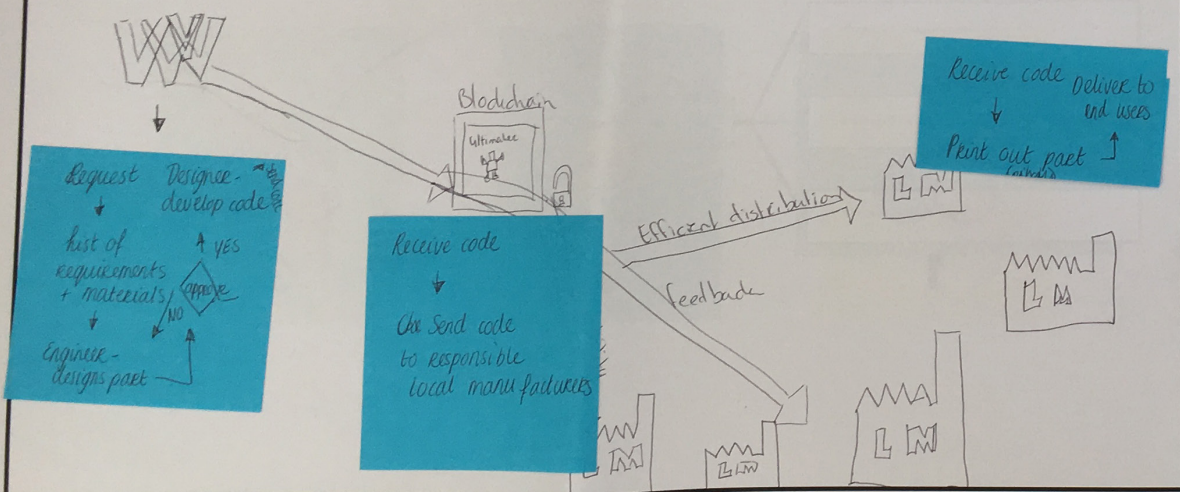 WW
Request
list of
requirements
+ materials
Engineer-
designs part
approve
NO
YES
Designer-
develop code
Blockchain
Ultimaker
Receive code
Send code
to responsible
local manufacturers
Efficient distribution
feedback
Receive code
Print out part
Deliver to
end users
LM
LM
LM
LM
LM